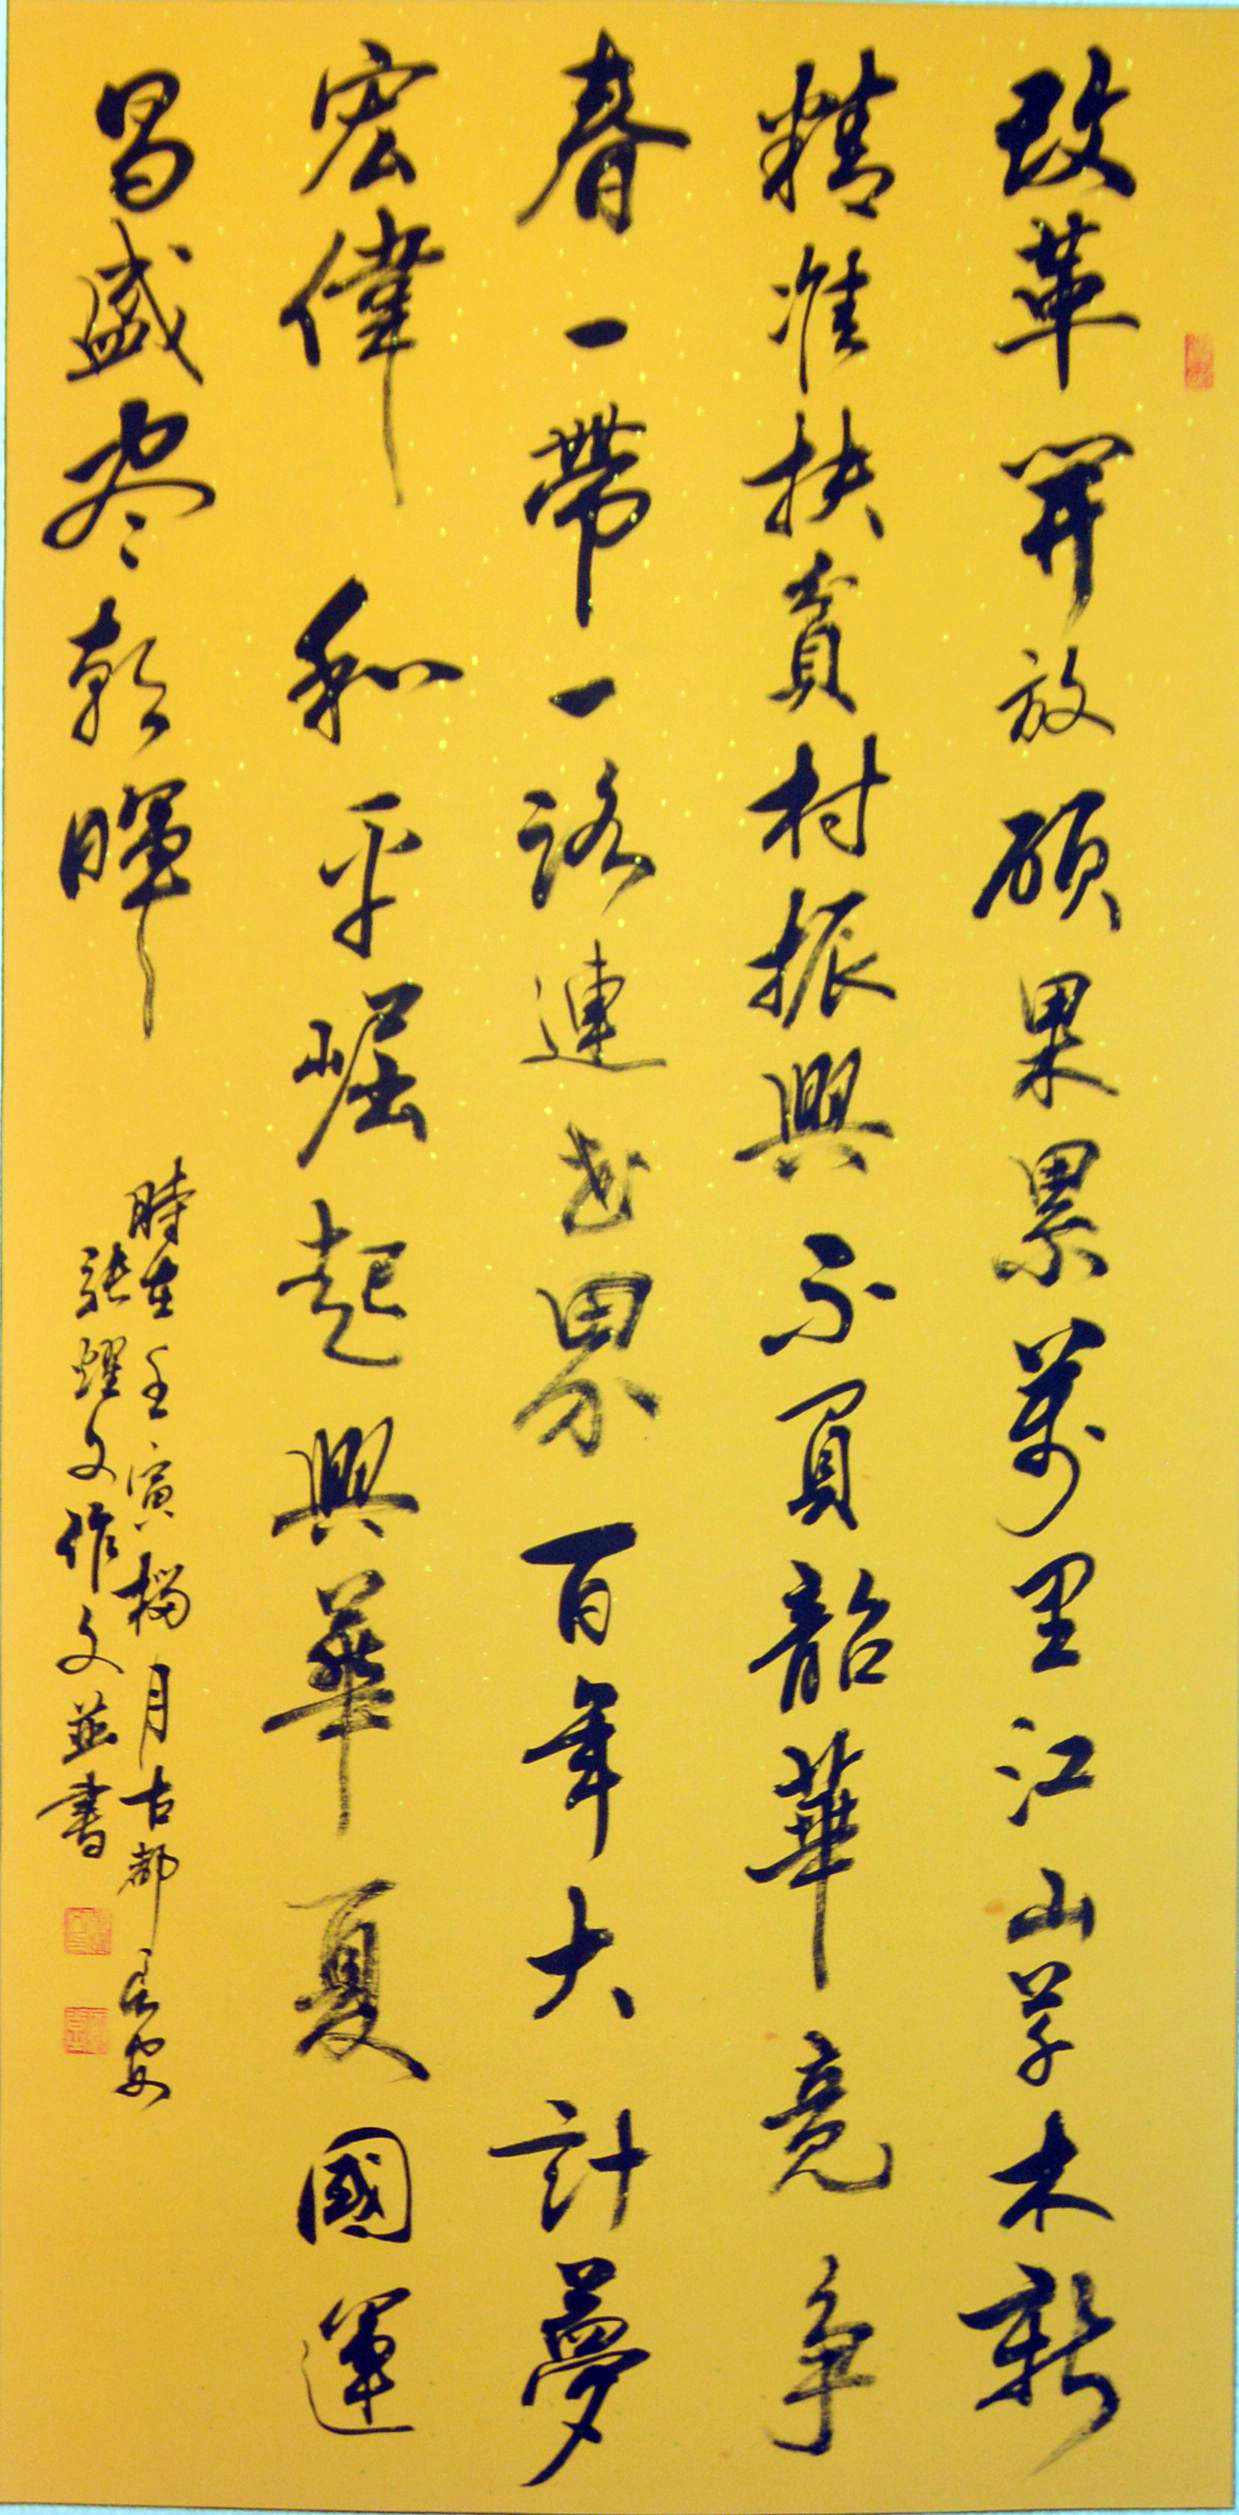 改革開放碩果累萬里江山草木新
精准扶貧村振興不負韶華竟争
春一帶一路連世界百年大計夢
宏偉和平崛起興華夏國運
昌盛尽朝暉
時在壬寅榴月古都長安
張耀文作文並書